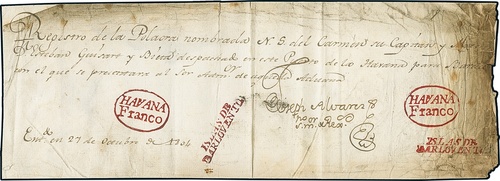 Registro de la Polacra nombrada N. S. del Carmen su Capitan y
Esteban Guisart y despachada en este Puerto de la Havana para
por el que se presentara al Sor Admor de Aduana
HAVANA
Franco
ISLAS DE
BARLOVENTO
Joseph Alvaris
HAVANA
Franco
ISLAS DE
BARLOVENTO
en 27 de Octubre de